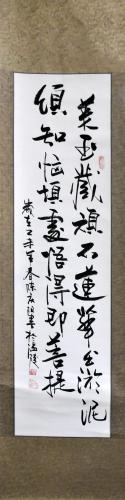 美玉藏頑石蓮華出淤泥
須知惱煩處悟得即菩提
歲在乙未年春陳書於溫陵